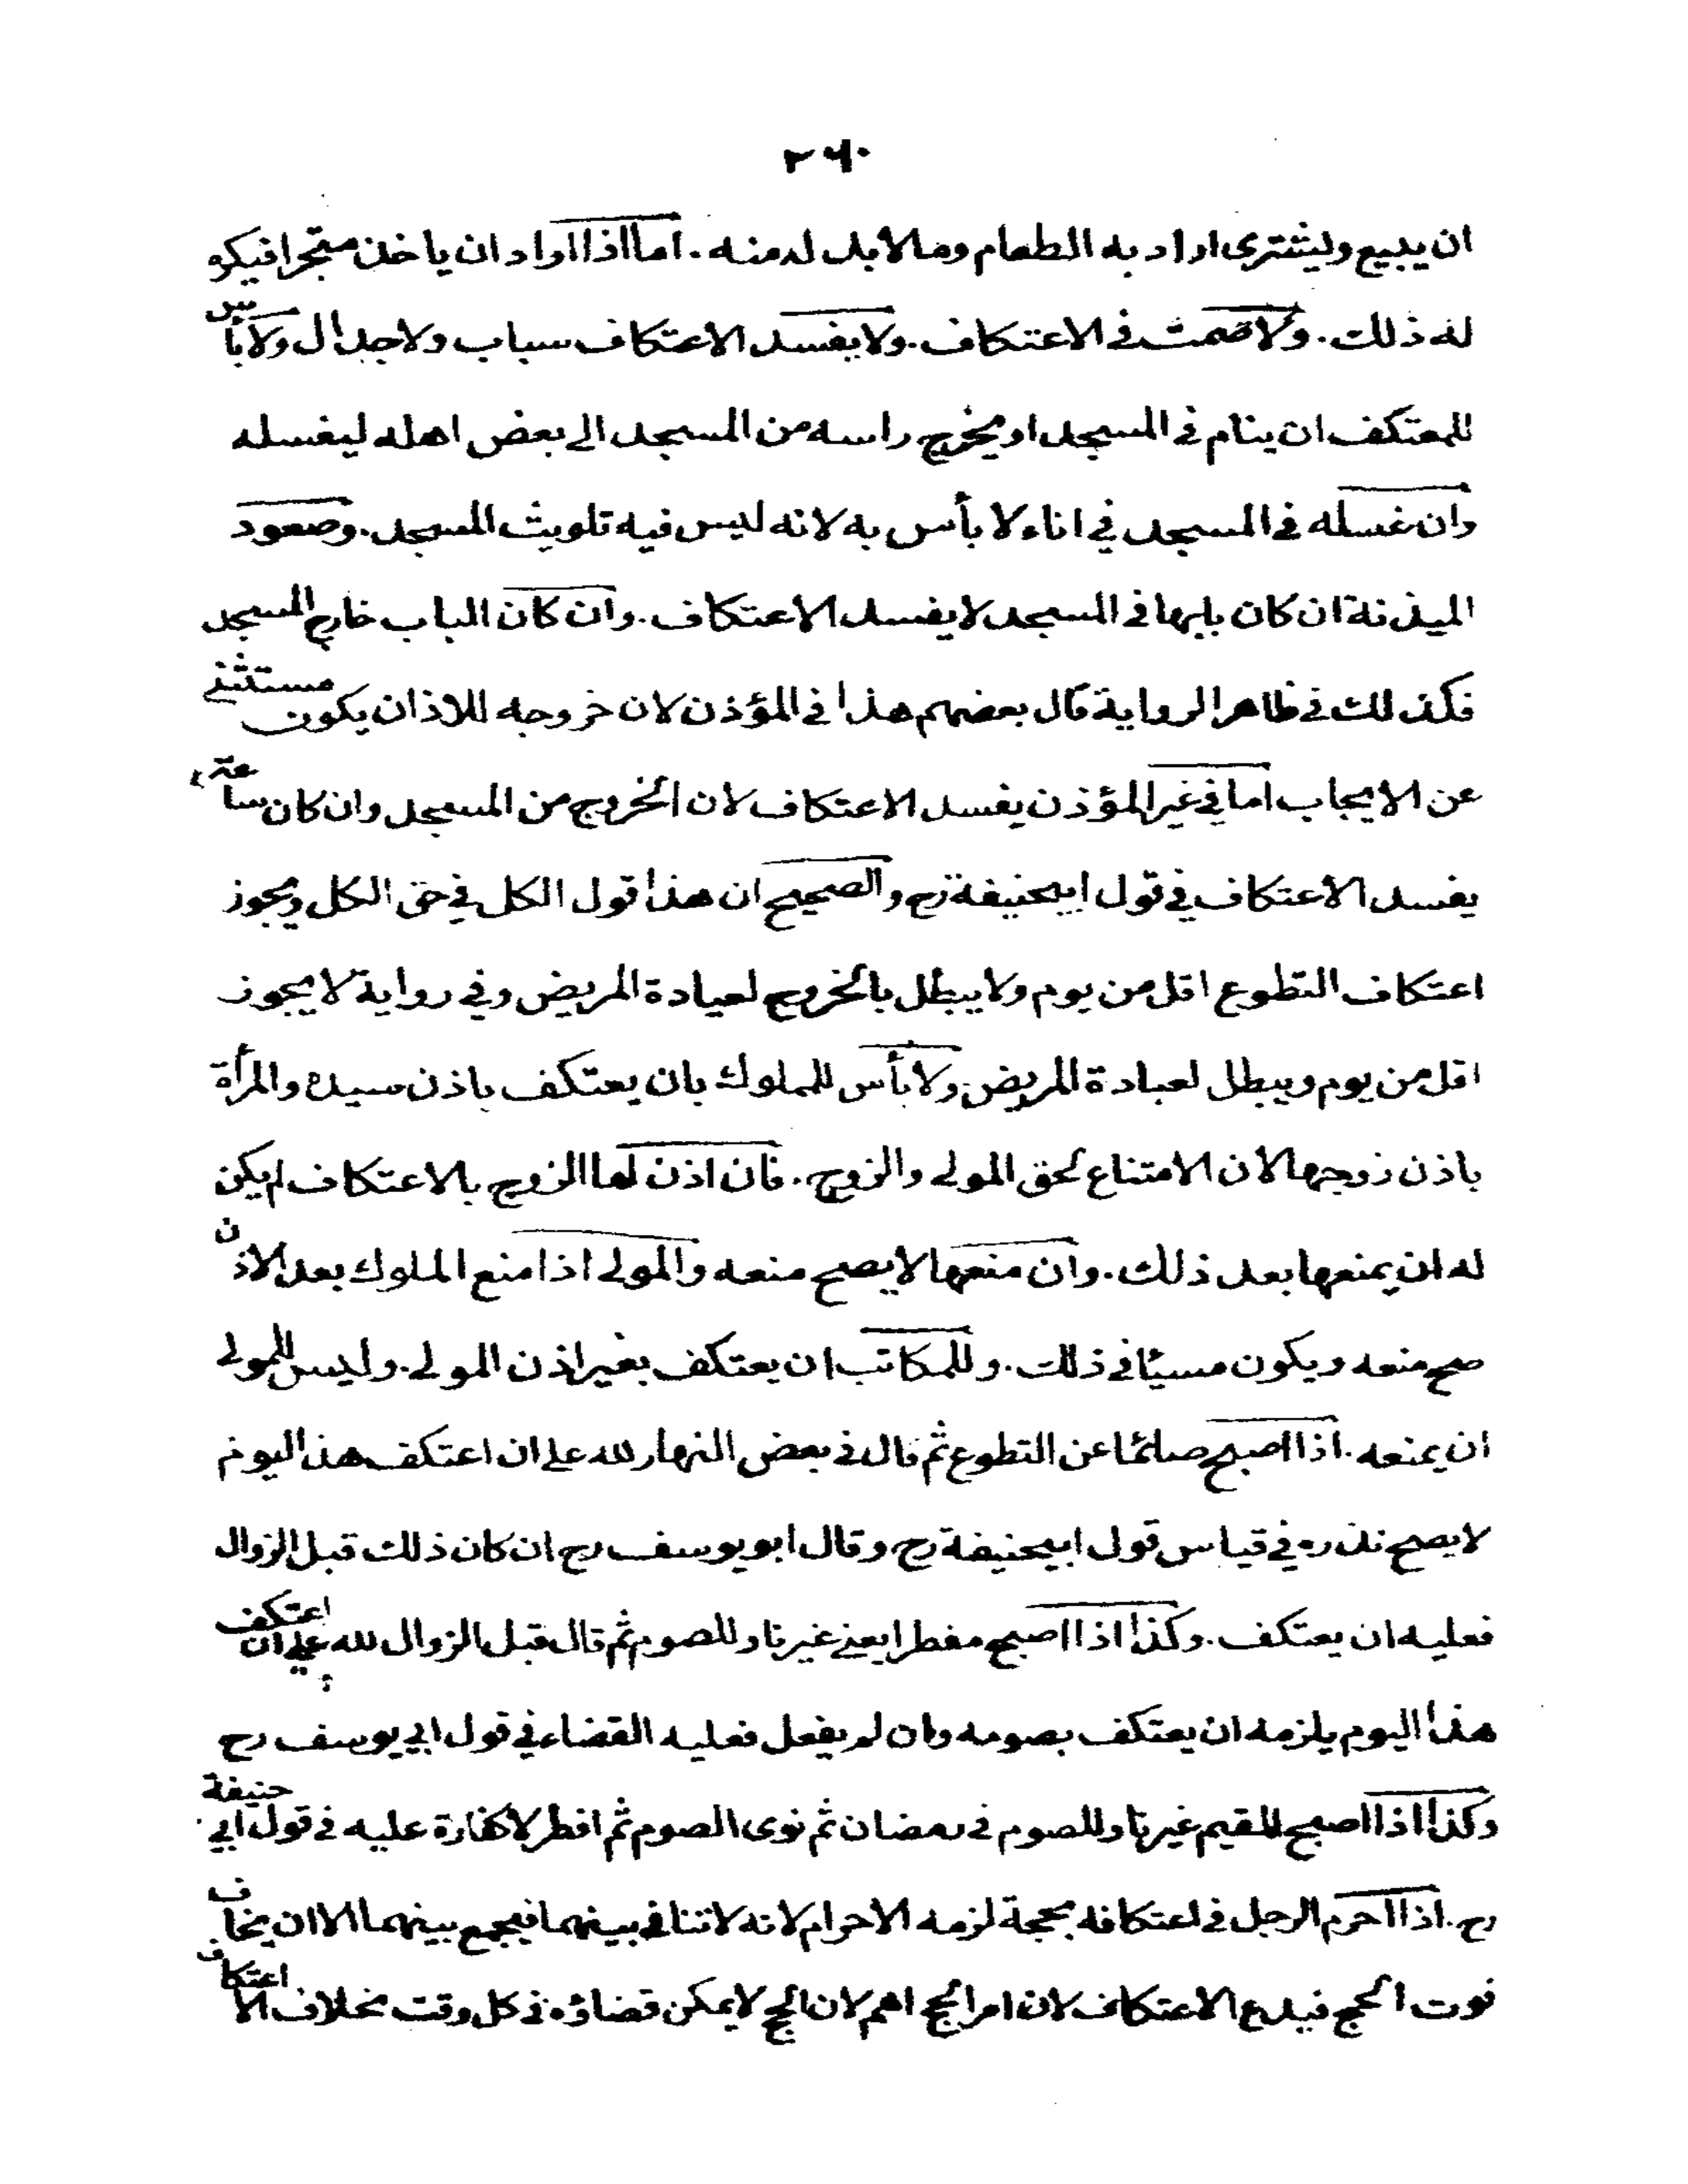 ۲۶۰
ان يبيع ويشترى اراد به الطعام وما لابد له منه . اما اذا اراد ان ياخذ متجرا فيكره
له ذلك . ولا صمت فى الاعتكاف . ولا يفسد الاعتكاف سباب ولا جدال ولا بأس
للمعتكف ان ينام فى المسجد او يخرج راسه من المسجد الى بعض اهله ليغسله
وان غسله فى المسجد في اناء لا بأس به لانه ليس فيه تلويث المسجد . وصعود
الميذنة ان كان بابها فى المسجد لا يفسد الاعتكاف . وان كان الباب خارج المسجد
فكذلك فى ظاهر الرواية قال بعضهم هذا فى المؤذن لان خروجه للاذان يكون مستثنى
عن الايجاب اما في غير المؤذن يفسد الاعتكاف لان الخروج من المسجد وان كان ساعة
يفسد الاعتكاف في قول ابيحنيفة رح والصحيح ان هذا قول الكل في حق الكل ويجوز
اعتكاف التطوع اقل من يوم ولا يبطل بالخروج لعيادة المريض وفي رواية لا يجوز
اقل من يوم ويبطل لعيادة المريض . ولا بأس للمملوك بان يعتكف باذن سيده والمرأة
باذن زوجها لان الامتناع لحق المولى والزوج . فان اذن لها الزوج بالاعتكاف لم يكن
له ان يمنعها بعد ذلك . وان منعها لا يصح منعه والمولى اذا منع المملوك بعد الاذن
صح منعه ويكون مسيئا فى ذلك . وللمكاتب ان يعتكف بغير اذن المولى . وليس للمولى
ان يمنعه . اذا اصبح صائما عن التطوع ثم قال فى بعض النهار لله على ان اعتكف هذا اليوم
لا يصح نذره في قياس قول ابيحنيفة رح وقال ابو يوسف رح ان كان ذلك قبل الزوال
فعليه ان يعتكف . وكذا اذا اصبح مفطرا يعنى غير ناو للصوم ثم قال قبل الزوال لله على ان اعتكف
هذا اليوم يلزمه ان يعتكف بصومه وان لم يفعل فعليه القضاء في قول ابي يوسف رح
وكذا اذا اصبح المقيم غير ناو للصوم فى رمضان ثم نوى الصوم ثم افطر لا كفارة عليه فى قول ابي حنيفة
رح . اذا احرم الرجل فى اعتكافه بحجة لزمه الاحرام لانه لا تنافى بينهما فيجمع بينهما الا ان يخاف
فوت الحج فيدع الاعتكاف لان امر الحج اهم لان الحج لا يمكن قضاؤه فى كل وقت بخلاف الاعتكاف